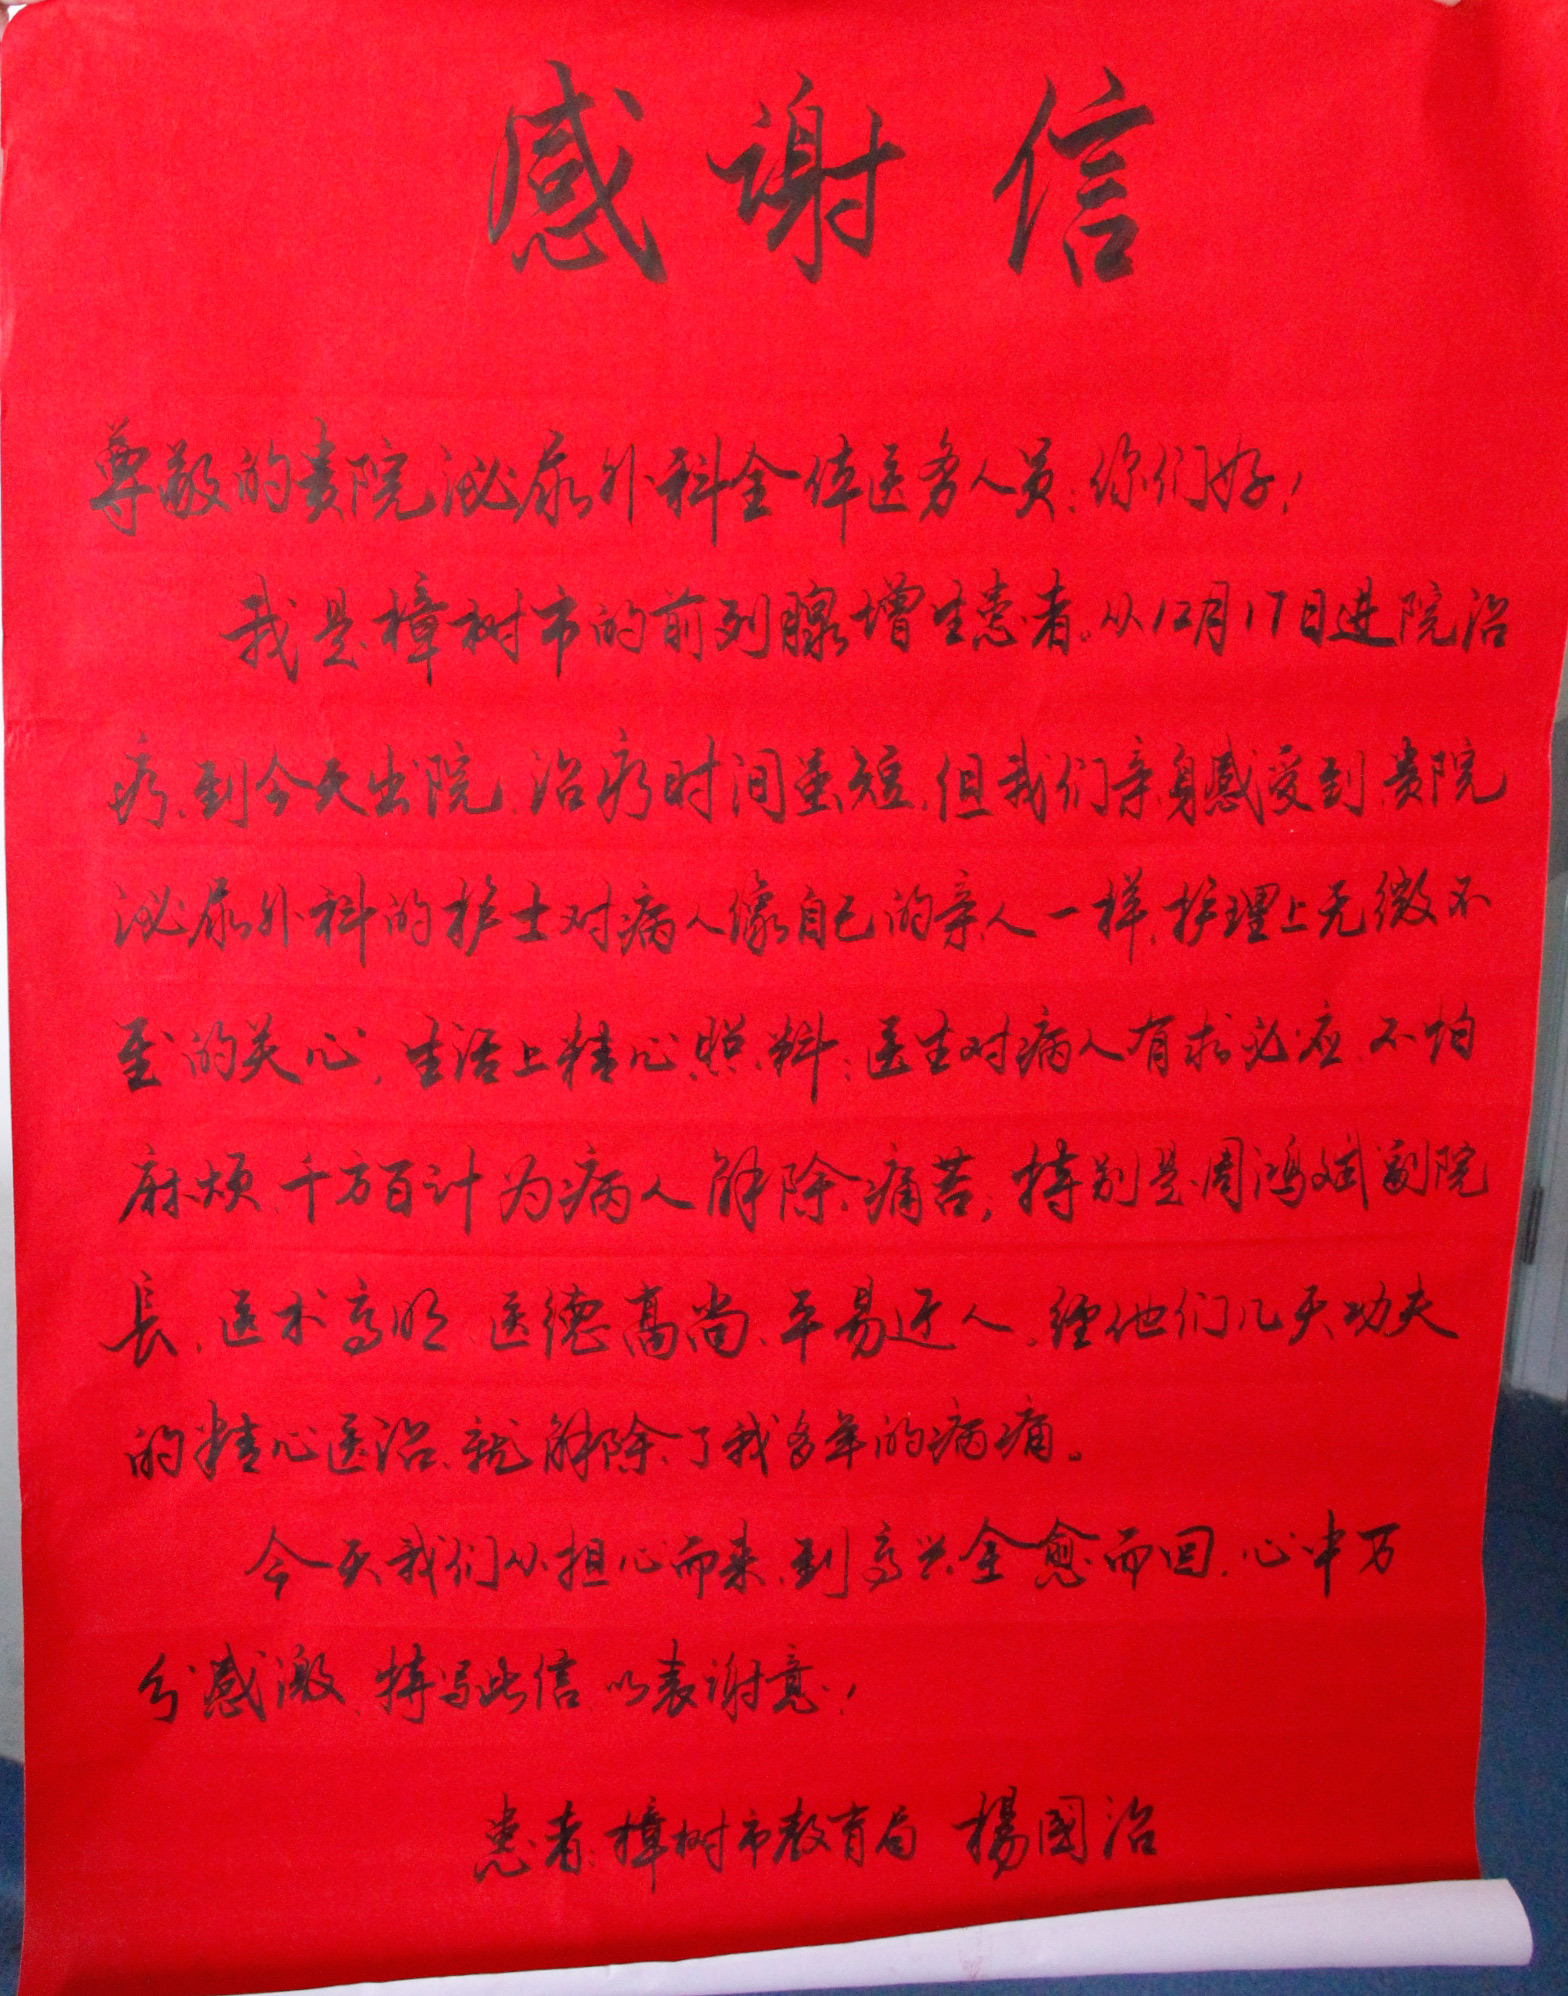 感谢信
尊敬的贵院泌尿外科全体医务人员：你们好！
我是樟树市的前列腺增生患者。从12月17日进院治
疗、到今天出院、治疗时间虽短、但我们亲身感受到、贵院
泌尿外科的护士对病人像自己的亲人一样、护理上无微不
至的关心，生活上精心照料；医生对病人有求必应、不怕
麻烦、千方百计为病人解除痛苦，特别是周鸿斌副院
長、医术高明、医德高尚、平易近人、经他们几天功夫
的精心医治、就解除了我多年的病痛。
今天我们从担心而来、到高兴全愈而回、心中万
分感激、特写此信、以表谢意！
患者：樟树市教育局 楊國治